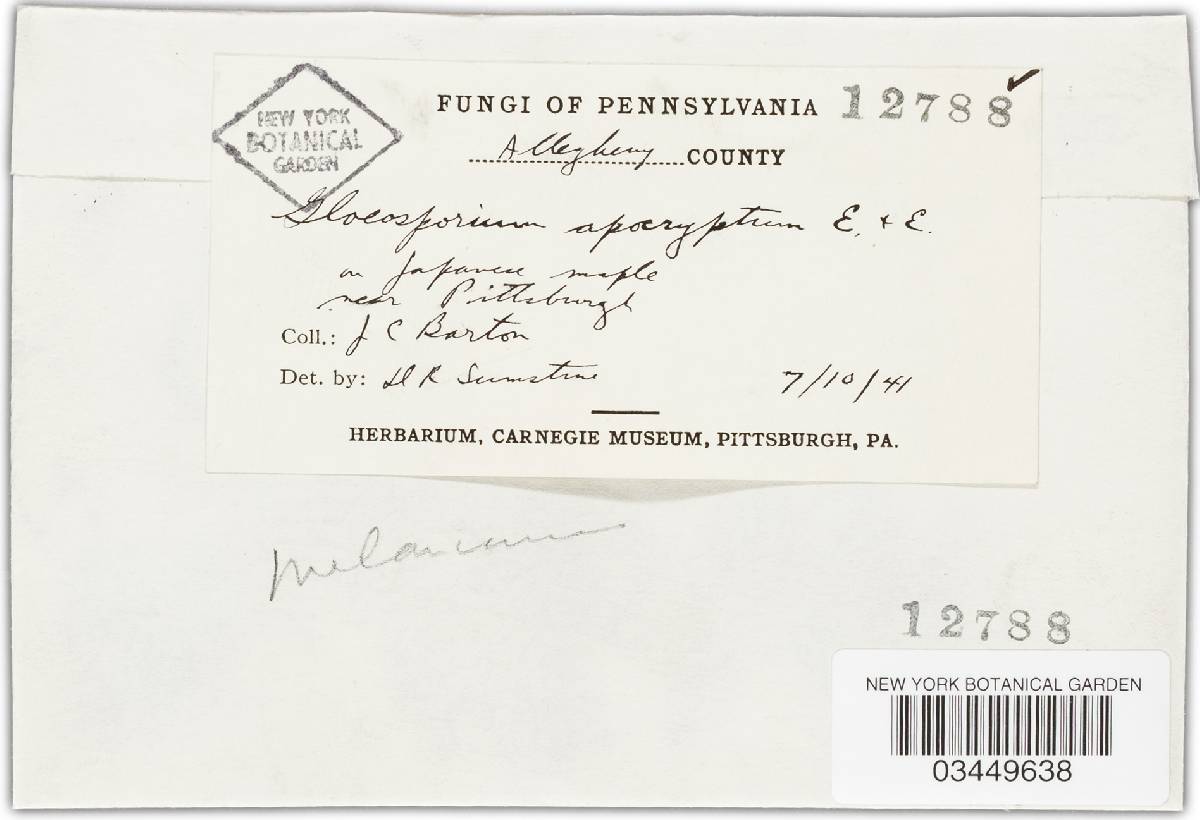 NEW YORK
BOTANICAL
GARDEN
FUNGI OF PENNSYLVANIA 12788
Allegheny COUNTY
Gloeosporium apocryptum E. & E.
on Japanese maple
near Pittsburgh
Coll.: J C Barton
Det. by: D R Sumstine 7/10/41
HERBARIUM, CARNEGIE MUSEUM, PITTSBURGH, PA.
12788
NEW YORK BOTANICAL GARDEN
03449638